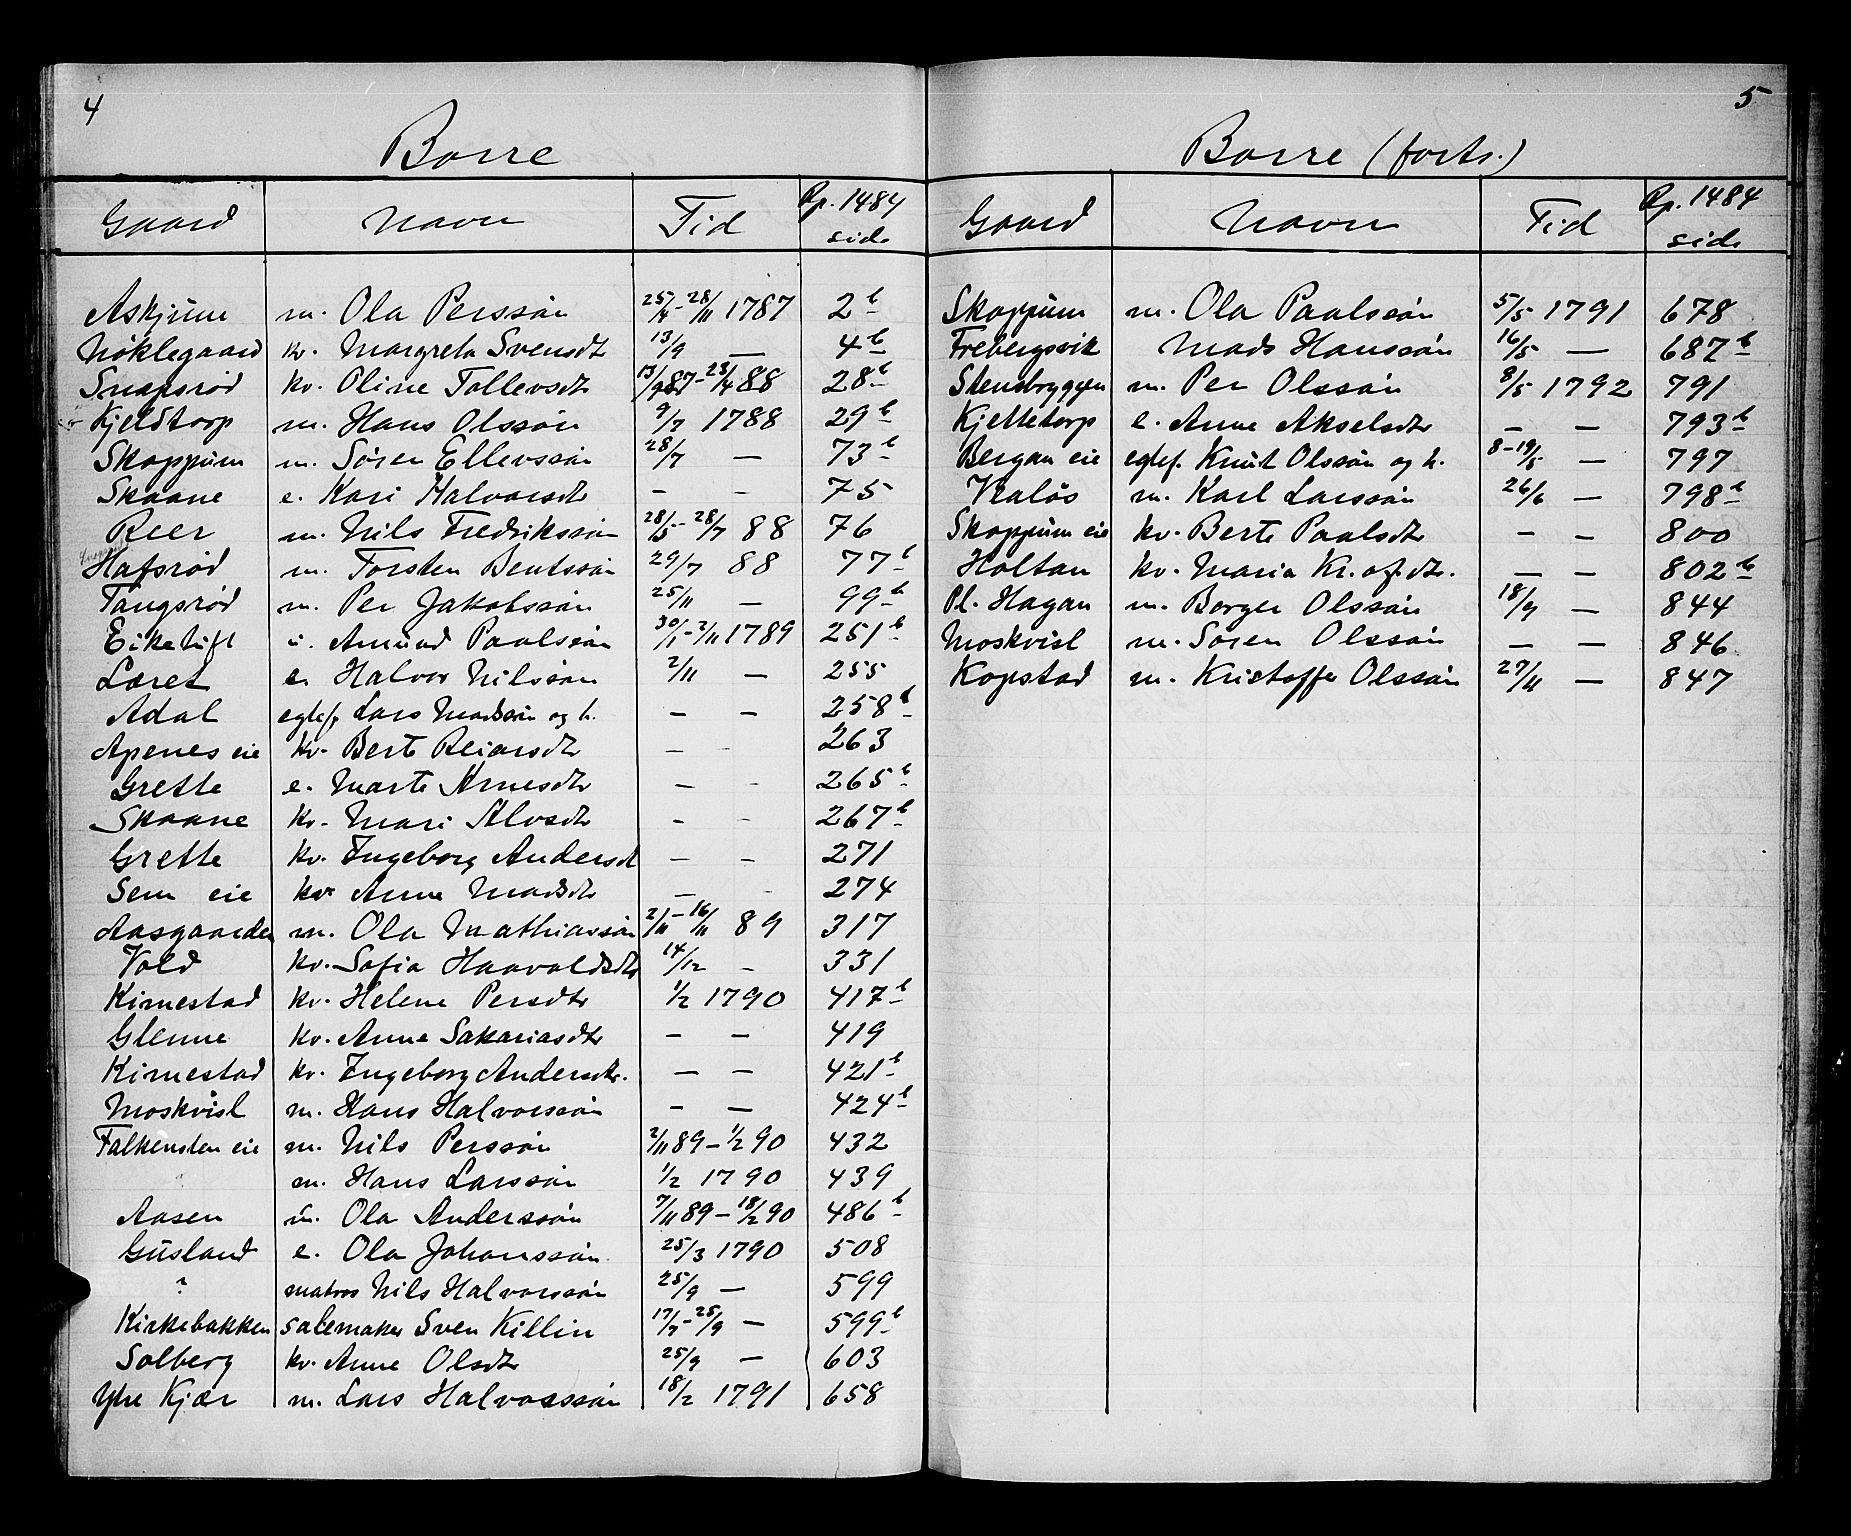 4
Borre
Gaard Navn Tid Rp. 1484 side
Askjum m. Ola Perssøn 25/4-28/11 1787 2b
Nøklegaard kv. Margreta Svensdtr 13/9 — 4b
Snapsrød kv. Oline Tollevsdtr 13/9 87-23/4 88 28b
Kjeldtorp m. Hans Olssøn 9/7 1788 29b
Skoppum m. Søren Ellevssøn 28/7 — 73b
Skaane e. Kari Halvorsdtr - - 75
Reer m. Nils Fredrikssøn 28/5-28/7 88 76
Hafsrød m. Torsten Bentssøn 29/7 88 77b
Tangsrød m. Per Jakobssøn 25/11 — 99b
Eiketuft u. Amund Paalssøn 30/1-2/11 1789 251b
Læret e. Halvor Nilssøn 2/11 — 255
Adal egtef. Lars Madssøn og h. — — 258b
Apenes eie kv. Berte Reiarsdtr - - 263
Grette e. Marte Arnesdtr — - 265b
Skaane kv. Mari Alvsdtr - - 267b
Grette kv. Ingeborg Andersdt — - 271
Sem eie kv. Anne Madsdtr — - 274
Aasgaarden m. Ola Mathiassøn 2/11-16/11 89 317
Vold kv. Sofia Haavoldsdtr 14/12 - 331
Kirnestad kv. Helene Persdtr 1/2 1790 417b
Glenne kv. Anne Sakariasdtr — — 419
Kirnestad kv. Ingeborg Andersdtr. — — 421b
Moskvisl m. Hans Halvorssøn - — 424b
Falkensten eie m. Nils Perssøn 2/11 89-1/2 90 432
m. Hans Larssøn 1/2 1790 439
Aasen u. Ola Anderssøn 7/11 89-18/2 90 486b
Gusland e. Ola Johanssøn 25/3 1790 508
? matros Nils Halvorssøn 25/9 — 599
Kirkebakken salemaker Sven Killin 17/7-25/9 — 599b
Solberg kv. Anne Olsdtr 25/9 — 603
Ytre Kjær m. Lars Halvorssøn 18/2 1791 658
5
Borre (forts.)
Gaard Navn Tid Rp. 1484 side
Skoppum m. Ola Paalssøn 5/5 1791 678
Frebergsvik Mads Hanssøn 16/5 — 687b
Stensbryggen m. Per Olssøn 8/5 1792 791
Kjettetorp e. Anne Akselsdtr — — 793b
Bergan eie egtef. Knut Olssøn og h. 8-19/5 — 797
Viuløs m. Karl Larssøn 26/6 — 798b
Skoppum eie kv. Berte Paalsdtr — — 800
Holtan kv. Maria Kr.of.dtr. — — 802b
Pl. Hagan m. Borger Olssøn 18/9 — 844
Moskvisl m. Søren Olssøn — — 846
Kopstad m. Kristoffer Olssøn 27/11 — 847